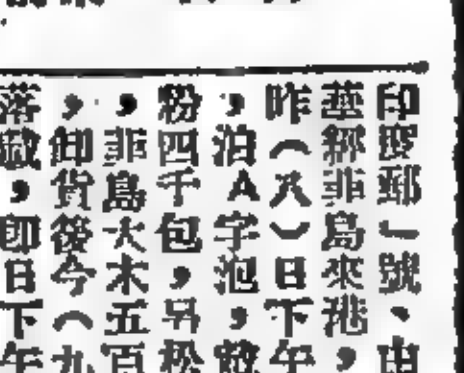 印度郵」號、由
經菲島來港，
昨（八）日下午
，泊A字泡，載
粉四千包，另松
，菲島大木五百
，卸貨後今（九
落載，即日下午